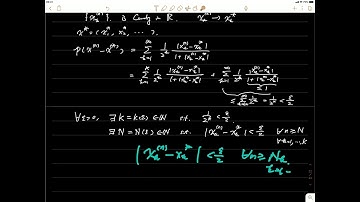 {x_n^{(m)}}. is Cauchy in ℝ. x_n^{(n)} → x_n^*
x^* = (x_1^*, x_2^*, ⋯).
ρ(x^{(n)}, x^*) = ∑_{k=1}^{∞} 1/2^k |x_k^{(n)} - x_k^*| / (1 + |x_k^{(n)} - x_k^*|)
= ∑_{k=1}^{K} 1/2^k |x_k^{(n)} - x_k^*| / (1 + |x_k^{(n)} - x_k^*|) + ∑_{k=K+1}^{∞} 1/2^k |x_k^{(n)} - x_k^*| / (1 + |x_k^{(n)} - x_k^*|)
≤ 1
≤ ∑_{k=K+1}^{∞} 1/2^k = 1/2^K < ε/2
∀ε>0, ∃ K = K(ε) ∈ ℕ s.t. 1/2^K < ε/2.
∃ N = N(ε) ∈ ℕ s.t. |x_k^{(n)} - x_k^*| < ε/2 ∀n ≥ N
∀k=1,⋯,K
|x_k^{(n)} - x_k^*| < ε/2 ∀n ≥ N_k